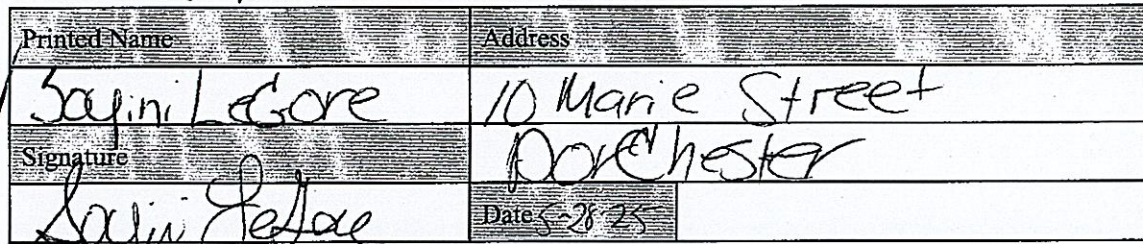 Printed Name Address
Sayini LeGore 10 Marie Street
Signature Dorchester
Sayini LeGore Date 5-28-25